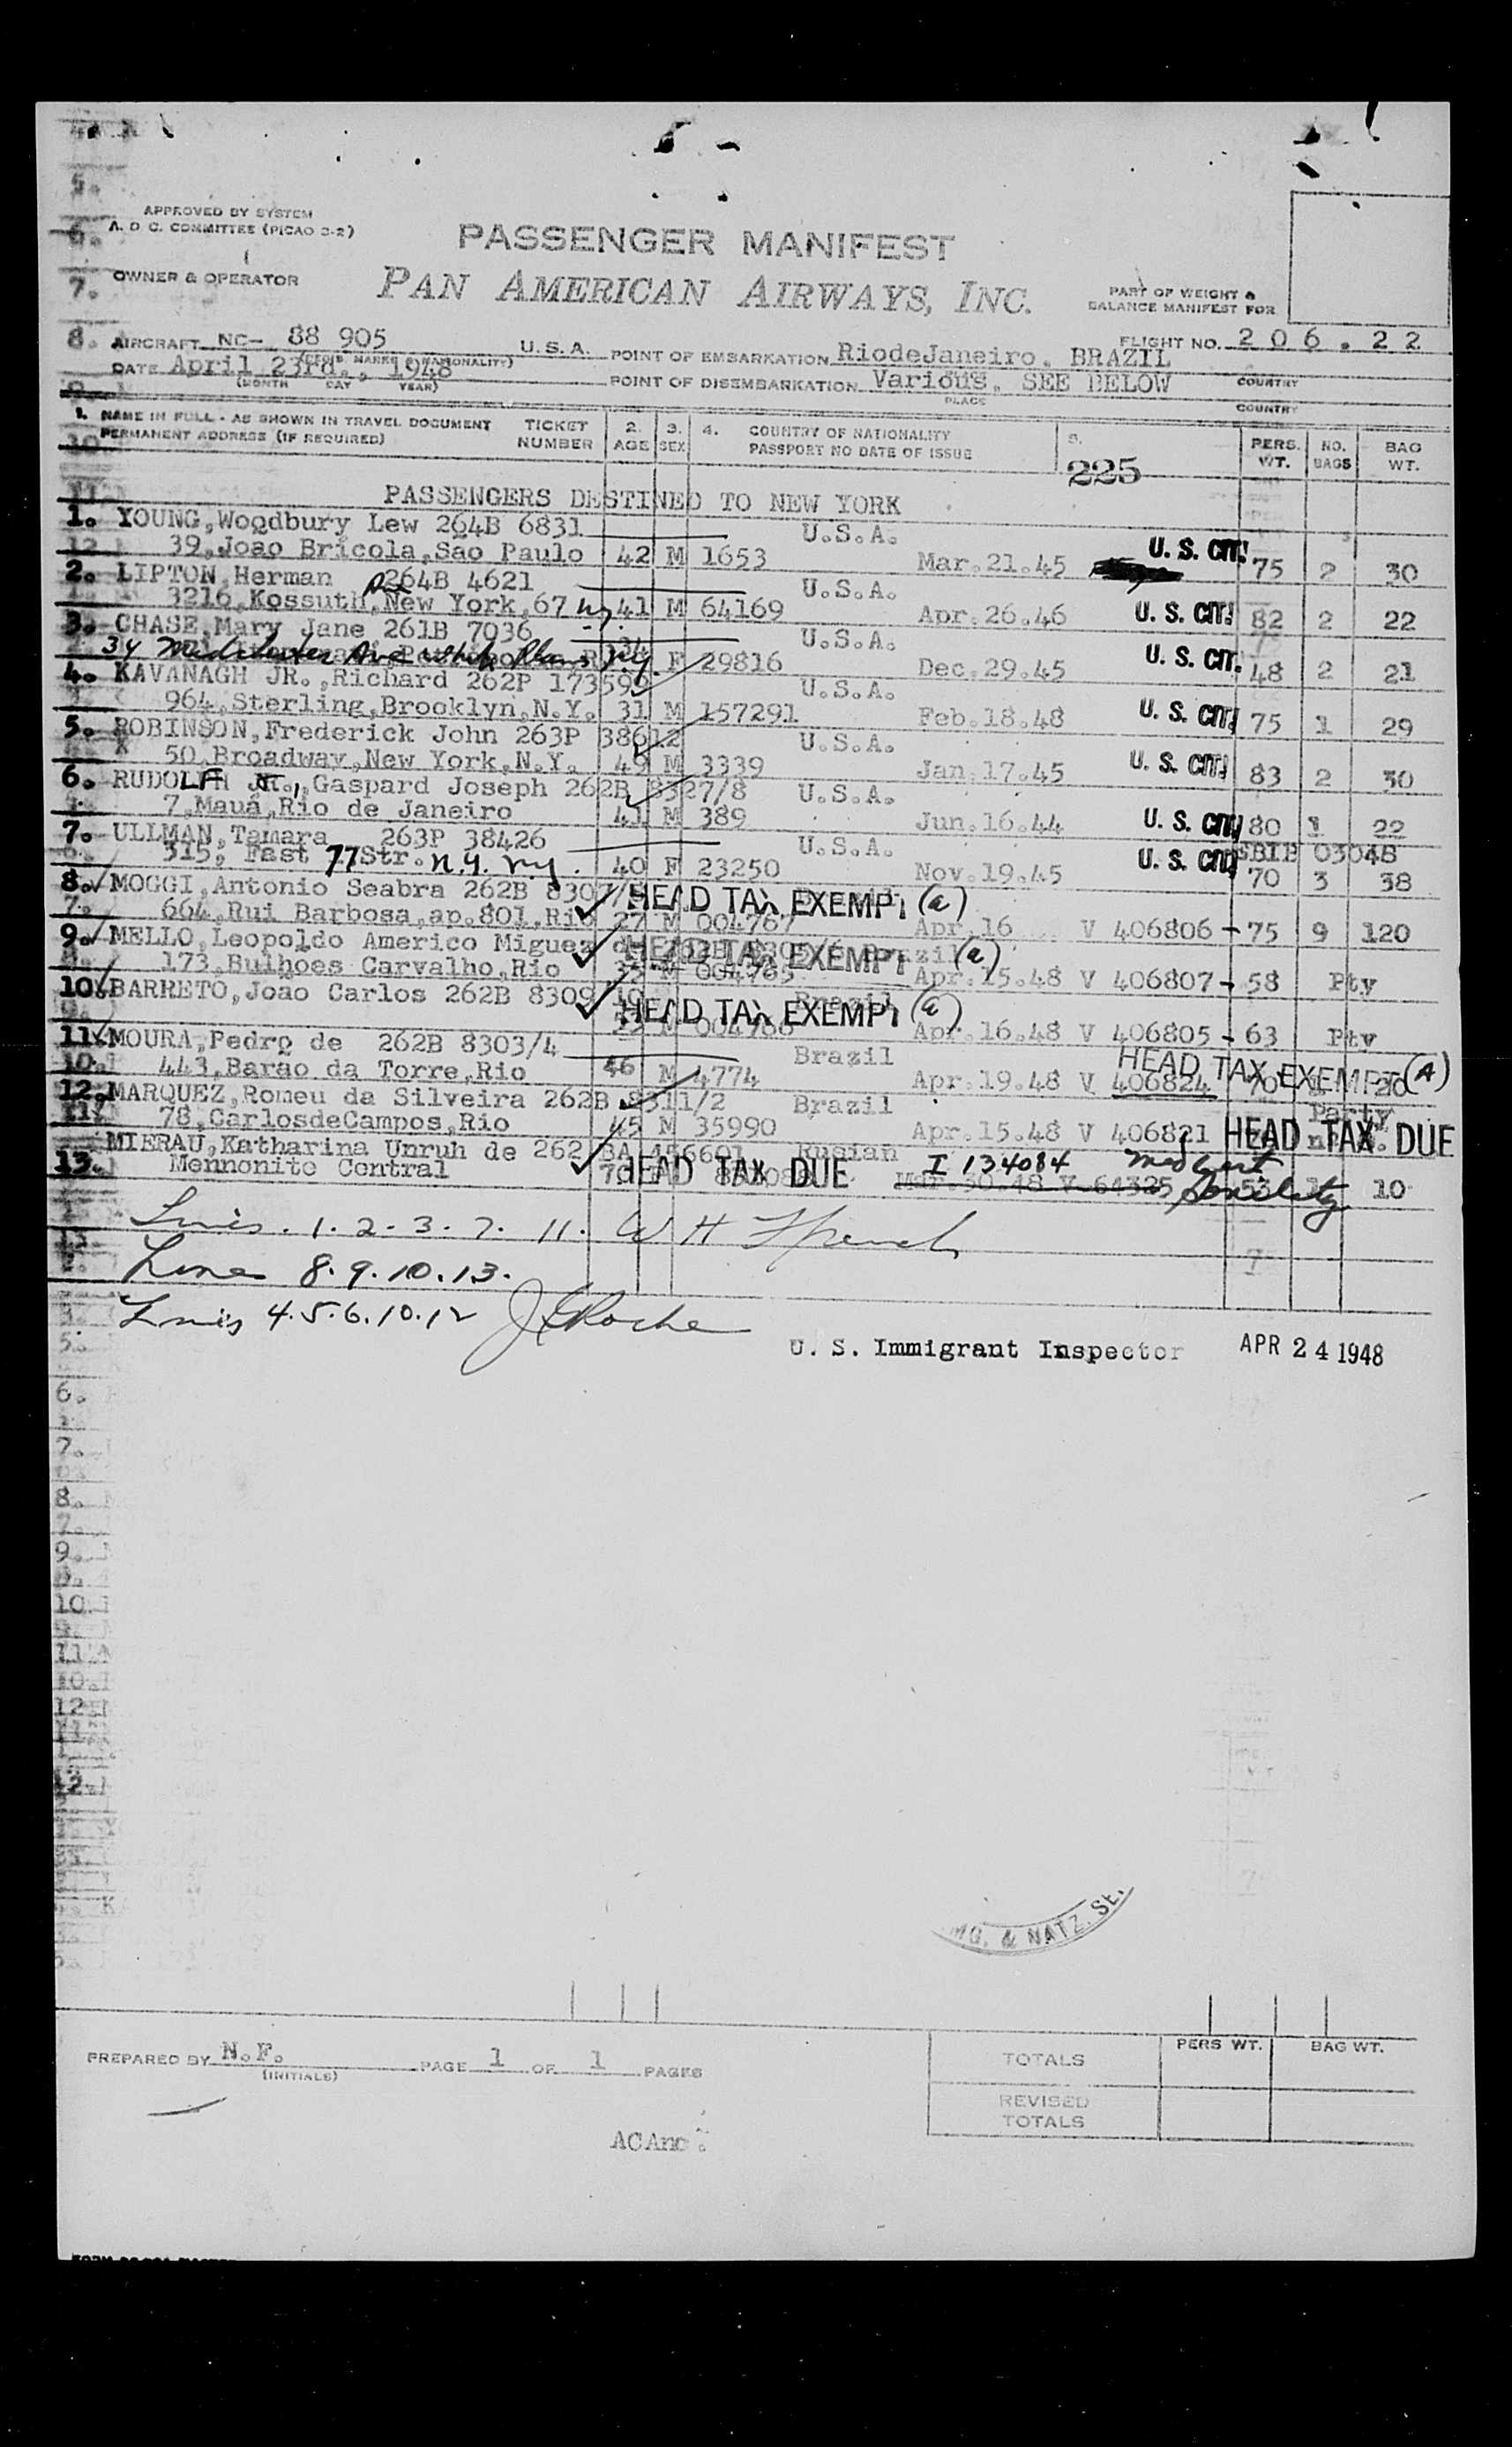 APPROVED BY SYSTEM
A. O C. COMMITTEE (PICAO 3-2)
PASSENGER MANIFEST
OWNER & OPERATOR
PAN AMERICAN AIRWAYS, INC.
PART OF WEIGHT &
BALANCE MANIFEST FOR
AIRCRAFT NC- 88 905 U.S.A. POINT OF EMBARKATION RiodeJaneiro. BRAZIL FLIGHT NO. 206.22
DATE April 23rd., 1948 POINT OF DISEMBARKATION Various. SEE BELOW COUNTRY
(MONTH DAY YEAR) PLACE COUNTRY
1. NAME IN FULL - AS SHOWN IN TRAVEL DOCUMENT TICKET 2. 3. 4. COUNTRY OF NATIONALITY 5. PERS. NO. BAG
PERMANENT ADDRESS (IF REQUIRED) NUMBER AGE SEX PASSPORT NO DATE OF ISSUE 225 WT. BAGS WT.
PASSENGERS DESTINED TO NEW YORK
1. YOUNG,Woodbury Lew 264B 6831 U.S.A.
39,Joao Bricola,Sao Paulo 42 M 1653 Mar.21.45 U. S. CIT. 75 2 30
2. LIPTON,Herman 264B 4621 U.S.A.
3216,Kossuth,New York,67 N.Y. 41 M 64169 Apr.26.46 U. S. CIT. 82 2 22
3. CHASE,Mary Jane 261B 7036 U.S.A.
34 Ave White Plains N.Y. F 29816 Dec.29.45 U. S. CIT. 48 2 21
4. KAVANAGH JR.,Richard 262P 173596 U.S.A.
964,Sterling,Brooklyn,N.Y. 31 M 157291 Feb.18.48 U. S. CIT. 75 1 29
5. ROBINSON,Frederick John 263P 38612 U.S.A.
50,Broadway,New York,N.Y. 49 M 3339 Jan.17.45 U. S. CIT. 83 2 30
6. RUDOLF JR.,Gaspard Joseph 262B 8327/8 U.S.A.
7,Mauá,Rio de Janeiro 41 M 389 Jun.16.44 U. S. CIT. 80 1 22
7. ULLMAN,Tamara 263P 38426 U.S.A. SBIB 03048
315, East 77 Str. N.Y. N.Y. 40 F 23250 Nov.19.45 U. S. CIT. 70 3 38
8. MOGGI,Antonio Seabra 262B 8307/8 HEAD TAX EXEMPT (a)
664,Rui Barbosa,ap.801,Rio 27 M 004767 Apr.16 V 406806 - 75 9 120
9. MELLO,Leopoldo Americo Miguez de HEAD TAX EXEMPT (a)
173,Bulhoes Carvalho,Rio 35 M 004765 Apr.15.48 V 406807 - 58 Pty
10. BARRETO,Joao Carlos 262B 8309 Brazil
HEAD TAX EXEMPT (a) Apr.16.48 V 406805 - 63 Pty
11. MOURA,Pedro de 262B 8303/4 Brazil HEAD TAX EXEMPT (A)
443,Barão da Torre,Rio 46 M 4774 Apr.19.48 V 406824 70 20
12. MARQUEZ,Romeu da Silveira 262B 8311/2 Brazil Party
78,CarlosdeCampos,Rio 45 M 35990 Apr.15.48 V 406821 HEAD TAX DUE
MIERAU,Katharina Unruh de 262 BA 456601 Rusian I 134084 Med Cert
13. Mennonite Central 70 HEAD TAX DUE Mar.30.48 V 64325 Senility 53 1 10
Lines. 1. 2. 3. 7. 11. W H
Lines 8. 9. 10. 13.
Lines 4. 5. 6. 10. 12 J Roche
U. S. Immigrant Inspector APR 24 1948
& NATZ. St.
PREPARED BY N.F. PAGE 1 OF 1 PAGES
(INITIALS)
PERS WT. BAG WT.
TOTALS
REVISED
TOTALS